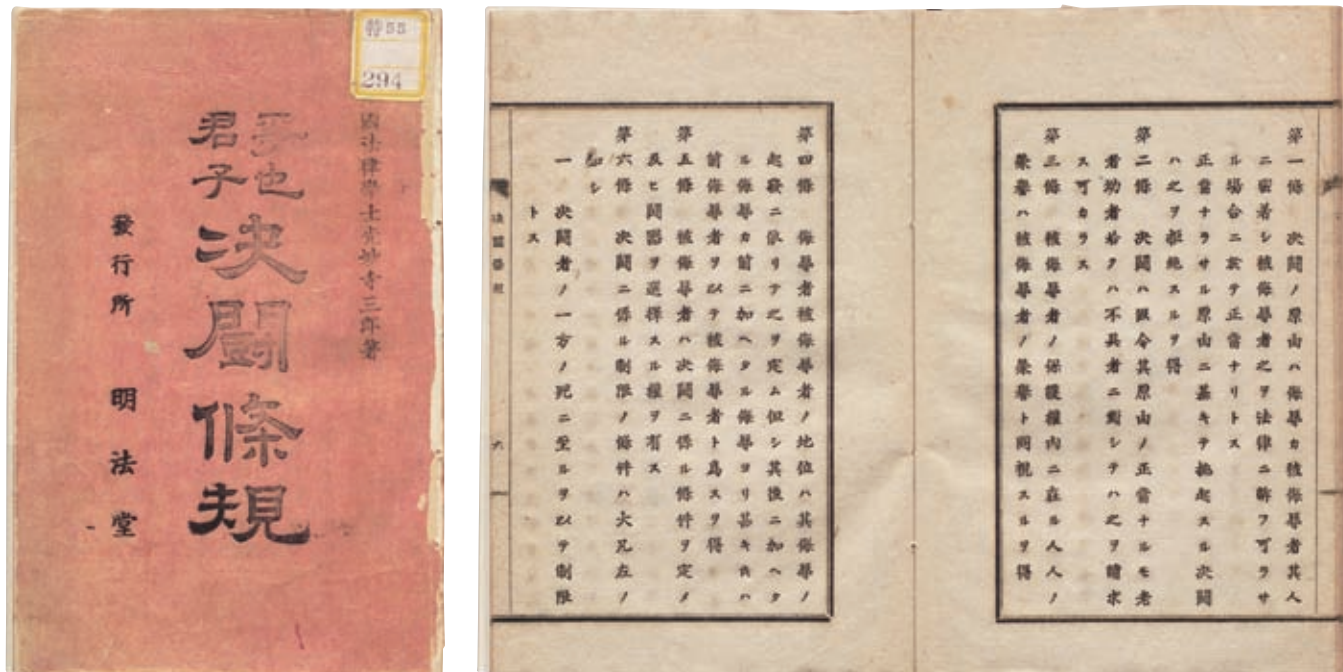 特55
294
國法律學士光妙寺三郎著
爭也
君子
決鬪條規
發行所 明法堂
第一條 決鬪ノ原由ハ侮辱カ被侮辱者其人
ニ密著シ被侮辱者之ヲ法律ニ訴フ可ラサ
ル場合ニ於テ正當ナリトス
正當ナラサル原由ニ基キテ挑起スル決鬪
ハ之ヲ拒絶スルヲ得
第二條 決鬪ハ假令其原由ノ正當ナルモ老
者幼者若クハ不具者ニ對シテハ之ヲ請求
ス可カラス
第三條 被侮辱者ノ保護權内ニ在ル人人ノ
榮譽ハ被侮辱者ノ榮譽ト同視スルヲ得
第四條 侮辱者被侮辱者ノ地位ハ其侮辱ノ
起發ニ依リテ之ヲ定ム但シ其後ニ加ヘタ
ル侮辱カ前ニ加ヘタル侮辱ヨリ甚キ片ハ
前侮辱者ヲ以テ被侮辱者ト爲スヲ得
第五條 被侮辱者ハ決鬪ニ係ル條件ヲ定メ
及ヒ鬪器ヲ選擇スル權ヲ有ス
第六條 決鬪ニ係ル制限ノ條件ハ大凡左ノ
如シ
一 決鬪者ノ一方ノ死ニ至ルヲ以テ制限
トス
決鬪條規
六